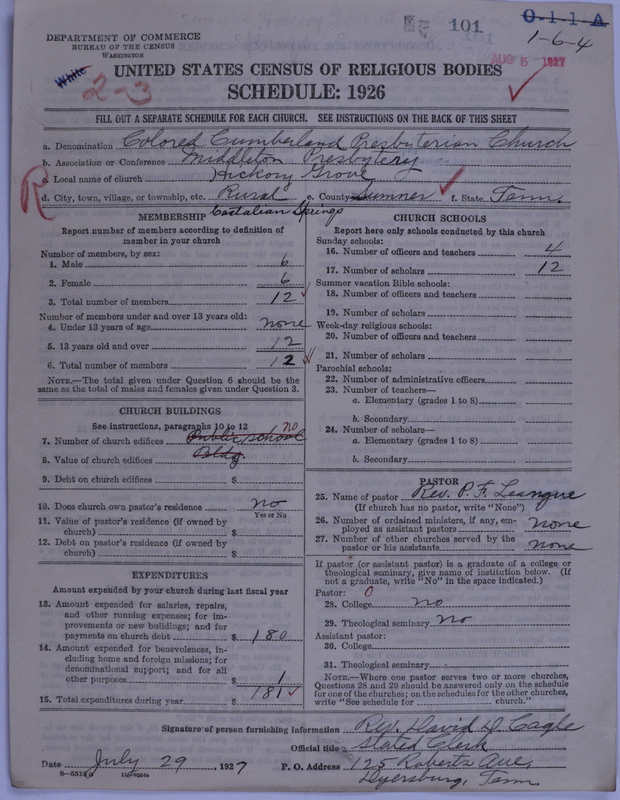 101
0-1-1-A
1-6-4
DEPARTMENT OF COMMERCE
BUREAU OF THE CENSUS
WASHINGTON
AUG 5 1927
White
2-3
UNITED STATES CENSUS OF RELIGIOUS BODIES
SCHEDULE: 1926
FILL OUT A SEPARATE SCHEDULE FOR EACH CHURCH. SEE INSTRUCTIONS ON THE BACK OF THIS SHEET
a. Denomination Colored Cumberland Presbyterian Church
b. Association or Conference Middleton Presbytery
c. Local name of church Hickory Grove
R
d. City, town, village, or township, etc. Rural e. County Sumner f. State Tenn.
Castalian Springs
MEMBERSHIP
Report number of members according to definition of
member in your church
Number of members, by sex:
1. Male 6
2. Female 6
3. Total number of members 12
Number of members under and over 13 years old:
4. Under 13 years of age none
5. 13 years old and over 12
6. Total number of members 12
NOTE.—The total given under Question 6 should be the
same as the total of males and females given under Question 3.
CHURCH BUILDINGS
See instructions, paragraphs 10 to 12
no
7. Number of church edifices Public school
8. Value of church edifices Bldg
9. Debt on church edifices $
10. Does church own pastor's residence no
Yes or No
11. Value of pastor's residence (if owned by
church) $
12. Debt on pastor's residence (if owned by
church) $
EXPENDITURES
Amount expended by your church during last fiscal year
13. Amount expended for salaries, repairs,
and other running expenses; for im-
provements or new buildings; and for
payments on church debt $ 180
14. Amount expended for benevolences, in-
cluding home and foreign missions; for
denominational support; and for all
other purposes $ 1
15. Total expenditures during year $ 181
CHURCH SCHOOLS
Report here only schools conducted by this church
Sunday schools:
16. Number of officers and teachers 4
17. Number of scholars 12
Summer vacation Bible schools:
18. Number of officers and teachers
19. Number of scholars
Week-day religious schools:
20. Number of officers and teachers
21. Number of scholars
Parochial schools:
22. Number of administrative officers
23. Number of teachers—
a. Elementary (grades 1 to 8)
b. Secondary
24. Number of scholars—
a. Elementary (grades 1 to 8)
b. Secondary
PASTOR
25. Name of pastor Rev. P. F. Leangue
(If church has no pastor, write "None")
26. Number of ordained ministers, if any, em-
ployed as assistant pastors none
27. Number of other churches served by the
pastor or his assistants none
If pastor (or assistant pastor) is a graduate of a college or
theological seminary, give name of institution below. (If
not a graduate, write "No" in the space indicated.)
Pastor: 0
28. College no
29. Theological seminary No
Assistant pastor:
30. College
31. Theological seminary
NOTE.—Where one pastor serves two or more churches,
Questions 28 and 29 should be answered only on the schedule
for one of the churches; on the schedules for the other churches,
write "See schedule for church."
Signature of person furnishing information Rev. David D. Cagle
Official title Stated Clerk
Date July 29, 1927 P. O. Address 125 Roberts Ave,
Dyersburg, Tenn.